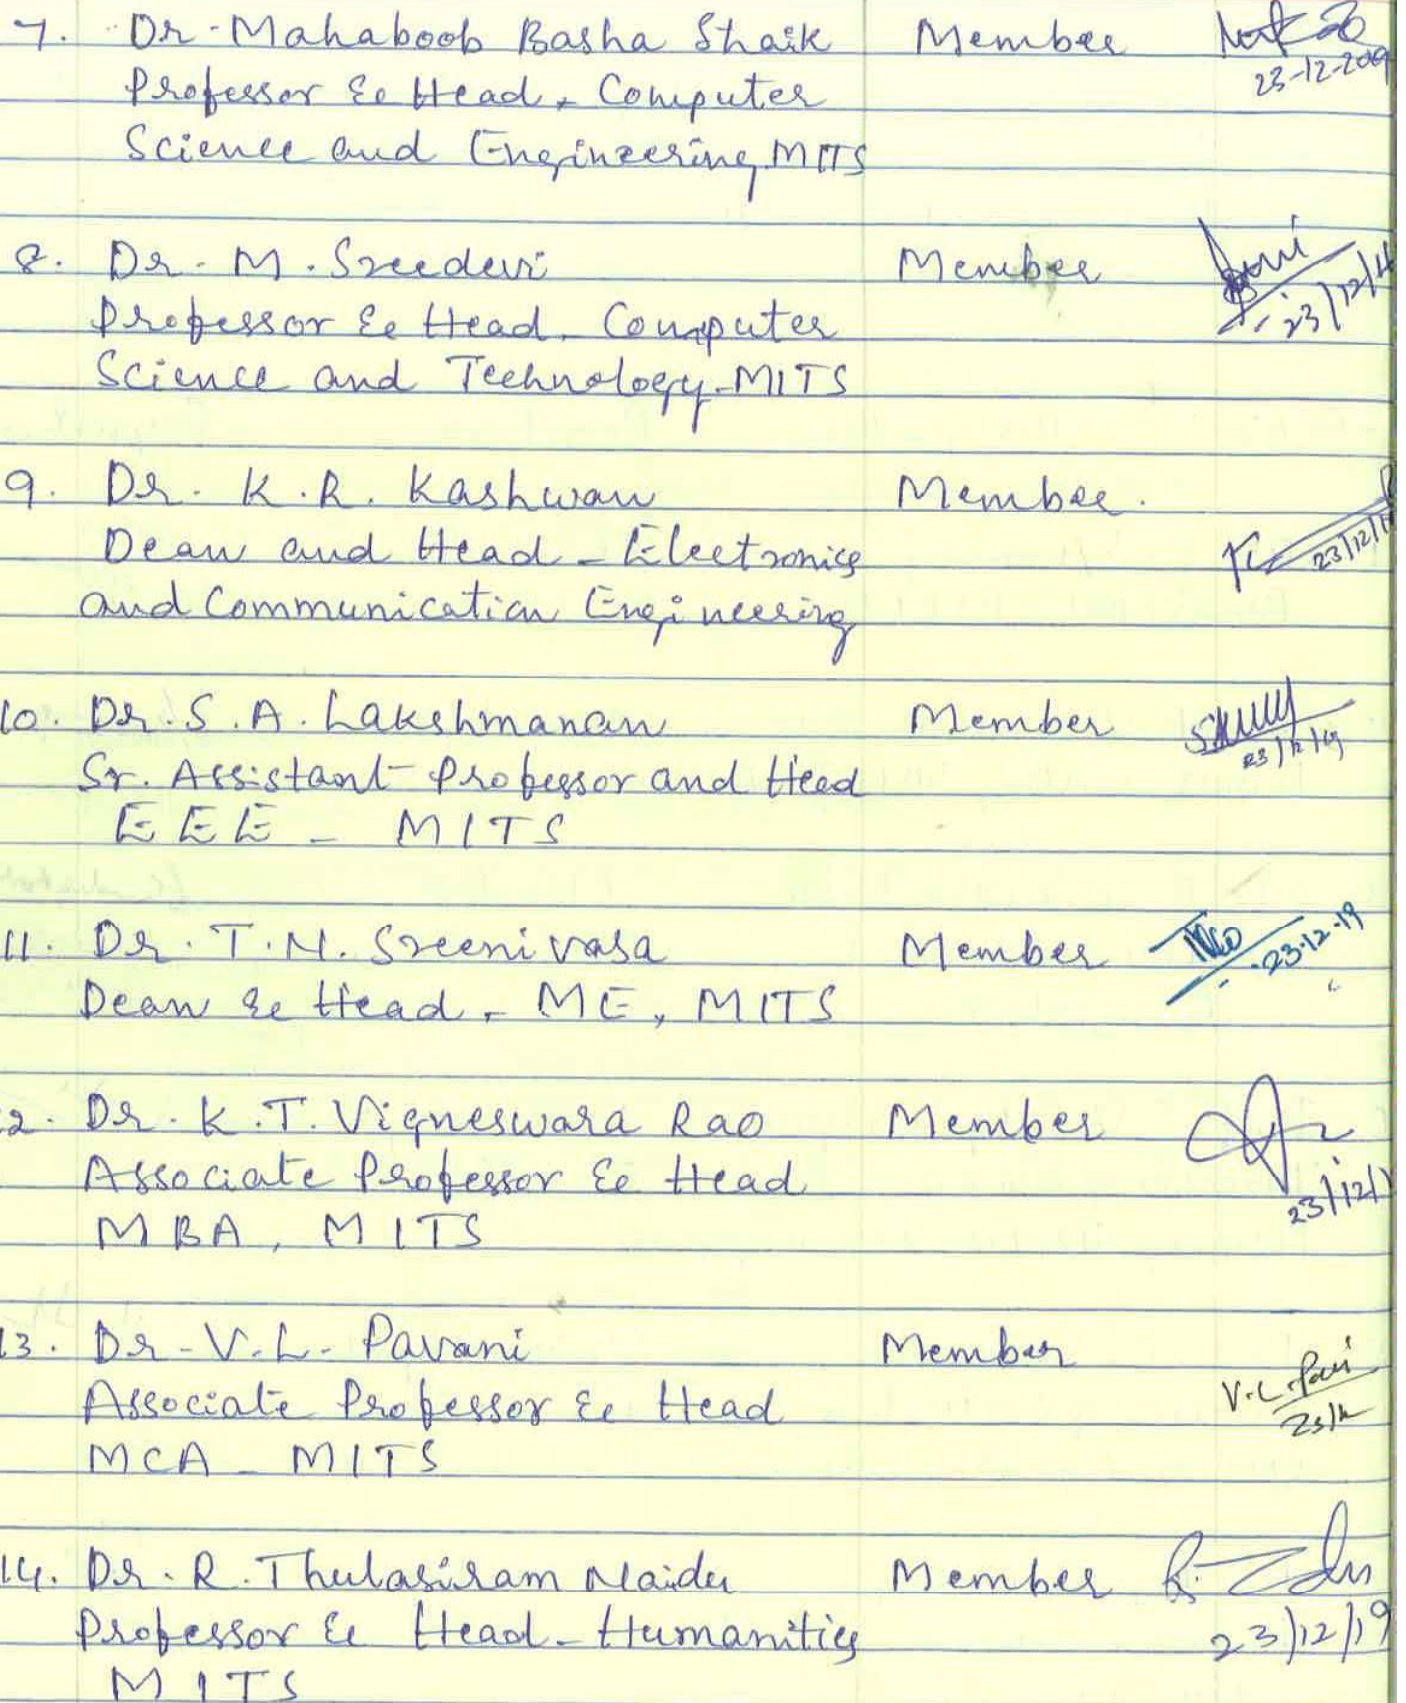 7. Dr. Mahaboob Basha Shaik Member
23-12-2019
Professor & Head, Computer
Science and Engineering, MITS
8. Dr. M. Sreedevi Member
23/12/19
Professor & Head, Computer
Science and Technology-MITS
9. Dr. K.R. Kashwan Member.
23/12/19
Dean and Head - Electronics
and Communication Engineering
10. Dr. S.A. Lakshmanan Member
23/12/19
Sr. Assistant Professor and Head
EEE - MITS
11. Dr. T.N. Sreenivasa Member
23.12.19
Dean & Head, ME, MITS
2. Dr. K.T. Vigneswara Rao Member
23/12/1
Associate Professor & Head
MBA, MITS
13. Dr. V.L. Pavani Member
V.L. Pavi
23/12
Associate Professor & Head
MCA - MITS
14. Dr. R. Thulasiram Naidu Member
23/12/19
Professor & Head - Humanities
MITS